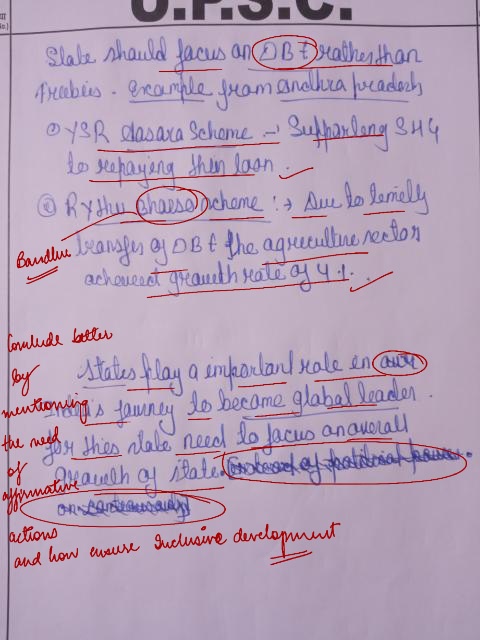 U.P.S.C.
State should focus on DBt rather than
freebies. Example from andhra pradesh
① YSR Aasara Scheme → Supporting SHG
to repaying then loan.
② Rythu Bhaesa scheme :→ Due to timely
Bandhu
transfer of DBt the agreeculture sector
acheveed growth rate of 4.1.
Conclude better
by
mentioning
the need
of
affirmative
actions
and how ensure Inclusive development
States play a important role in
India's journey to became global leader.
for thies state need to focus an overall
Growth of state.